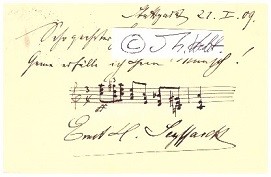 Stuttgart 21. I. 09.
Sehr geehrter
Gerne erfülle ich Ihren Wunsch!
ff
Ernst H. Seyffardt